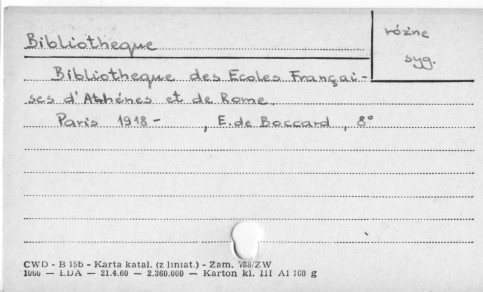 Bibliotheque
różne
syg.
Bibliotheque des Ecoles Françai-
ses d'Athénes et de Rome.
Paris 1918 - , E. de Boccard, 8°
CWD - B 15b - Karta katal. (z liniat.) - Zam. 788/ZW
1000 — LDA — 21.4.60 — 2.360.000 — Karton kl. III A1 160 g